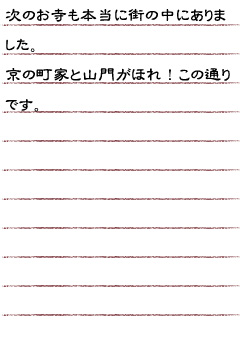 次のお寺も本当に街の中にありま
した。
京の町家と山門がほれ！この通り
です。